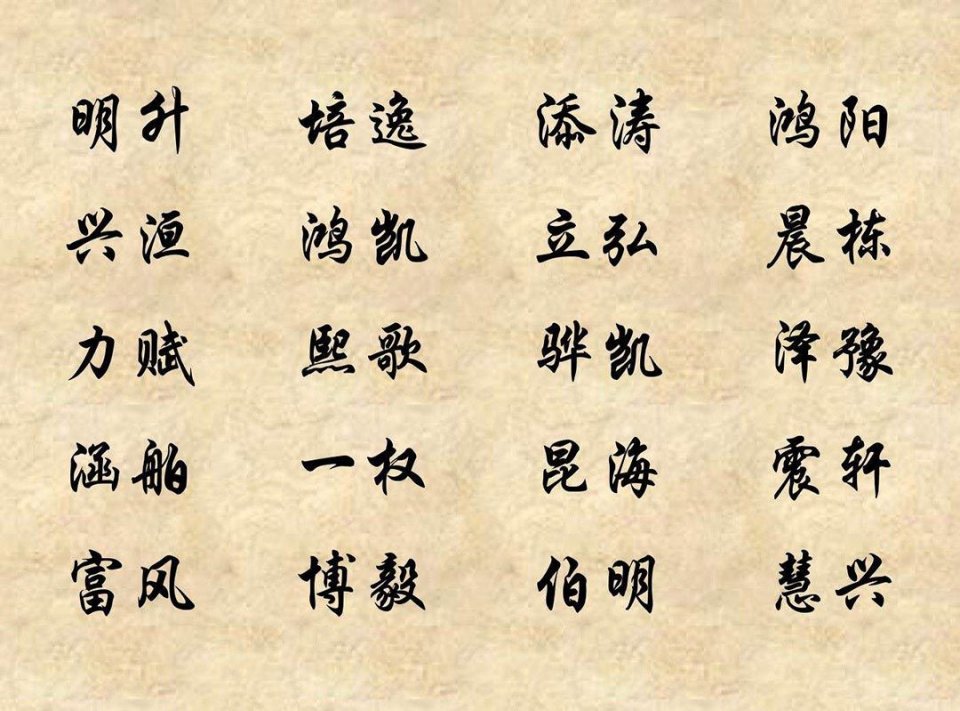 明升 培逸 添涛 鸿阳
兴洹 鸿凯 立弘 晨栋
力赋 熙歌 骅凯 泽豫
涵舶 一权 昆海 震轩
富风 博毅 伯明 慧兴